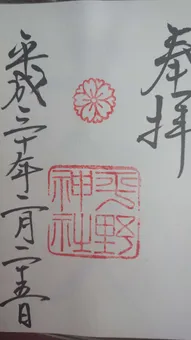 奉拝
平野
神社
平成三十年二月二十五日